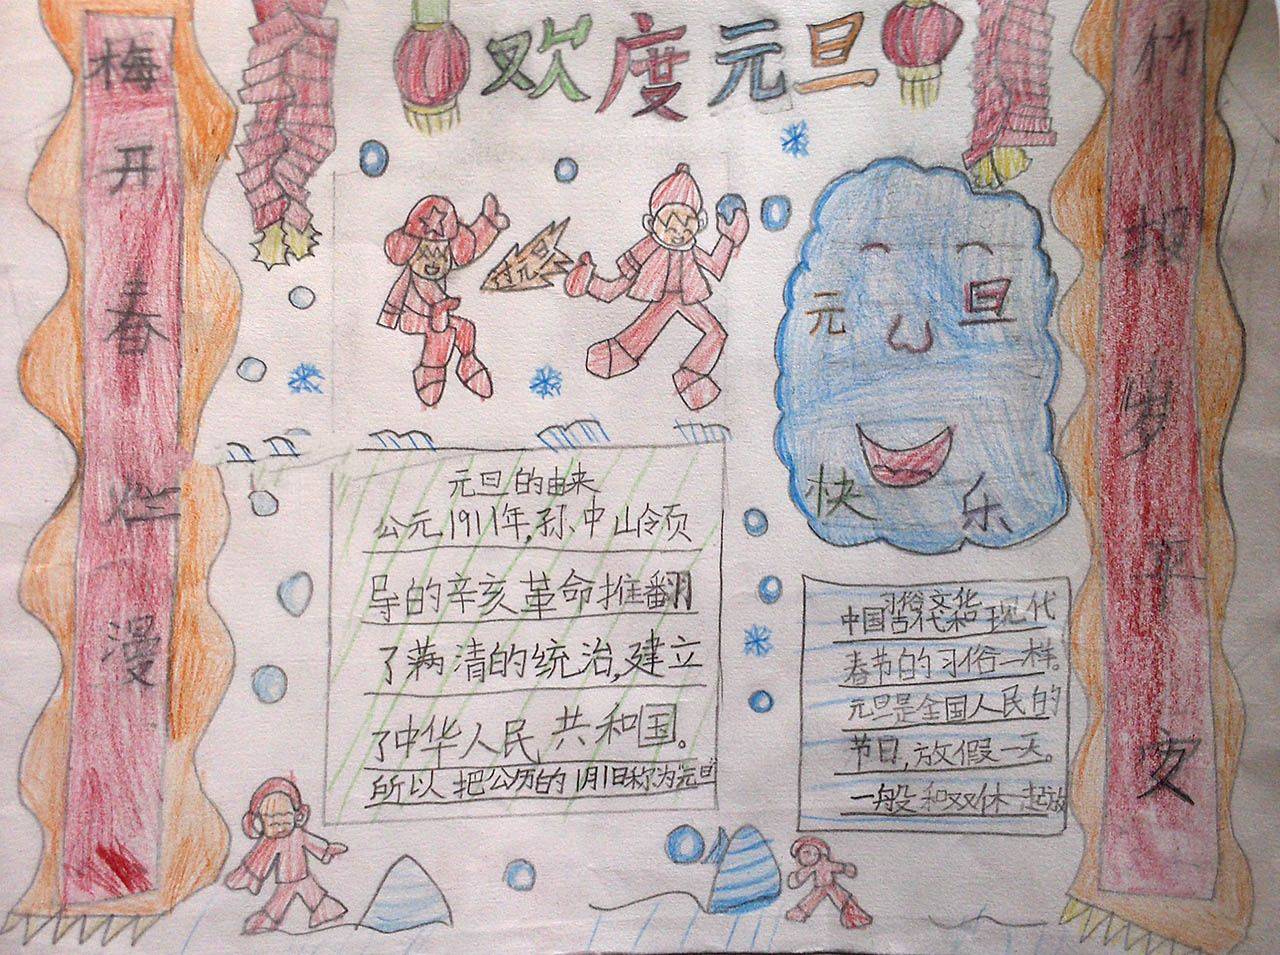 欢度元旦
梅开春烂漫
竹报岁平安
元旦
元旦
快乐
元旦的由来
公元1911年,孙中山领
导的辛亥革命推翻
了满清的统治,建立
了中华人民共和国。
所以把公历的1月1日称为"元旦
习俗文化
中国古代和现代
春节的习俗一样。
元旦是全国人民的
节日,放假一天。
一般和双休一起放